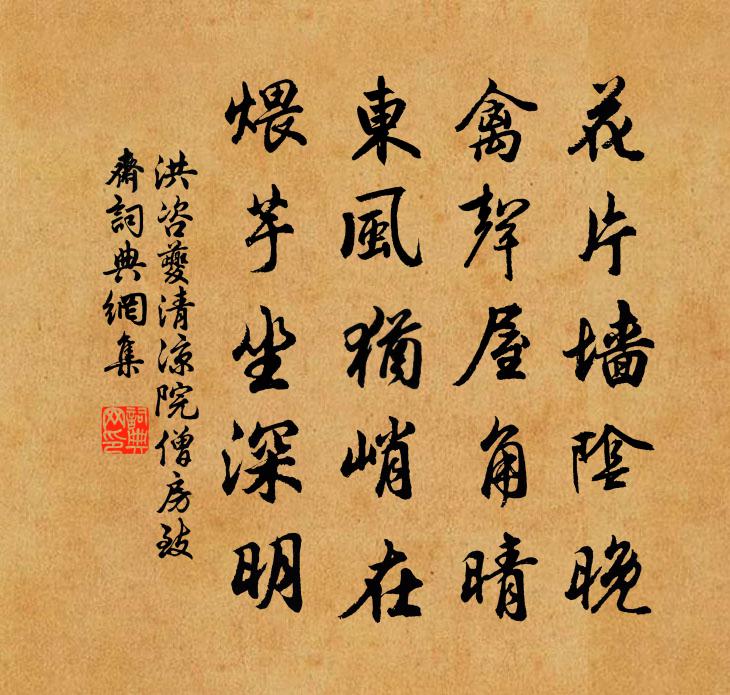 花片墙陰晚
禽聲屋角晴
東風猶峭在
煨芋坐深明
洪咨夔清凉院僧房致
齋詞典網集
詞典
网印